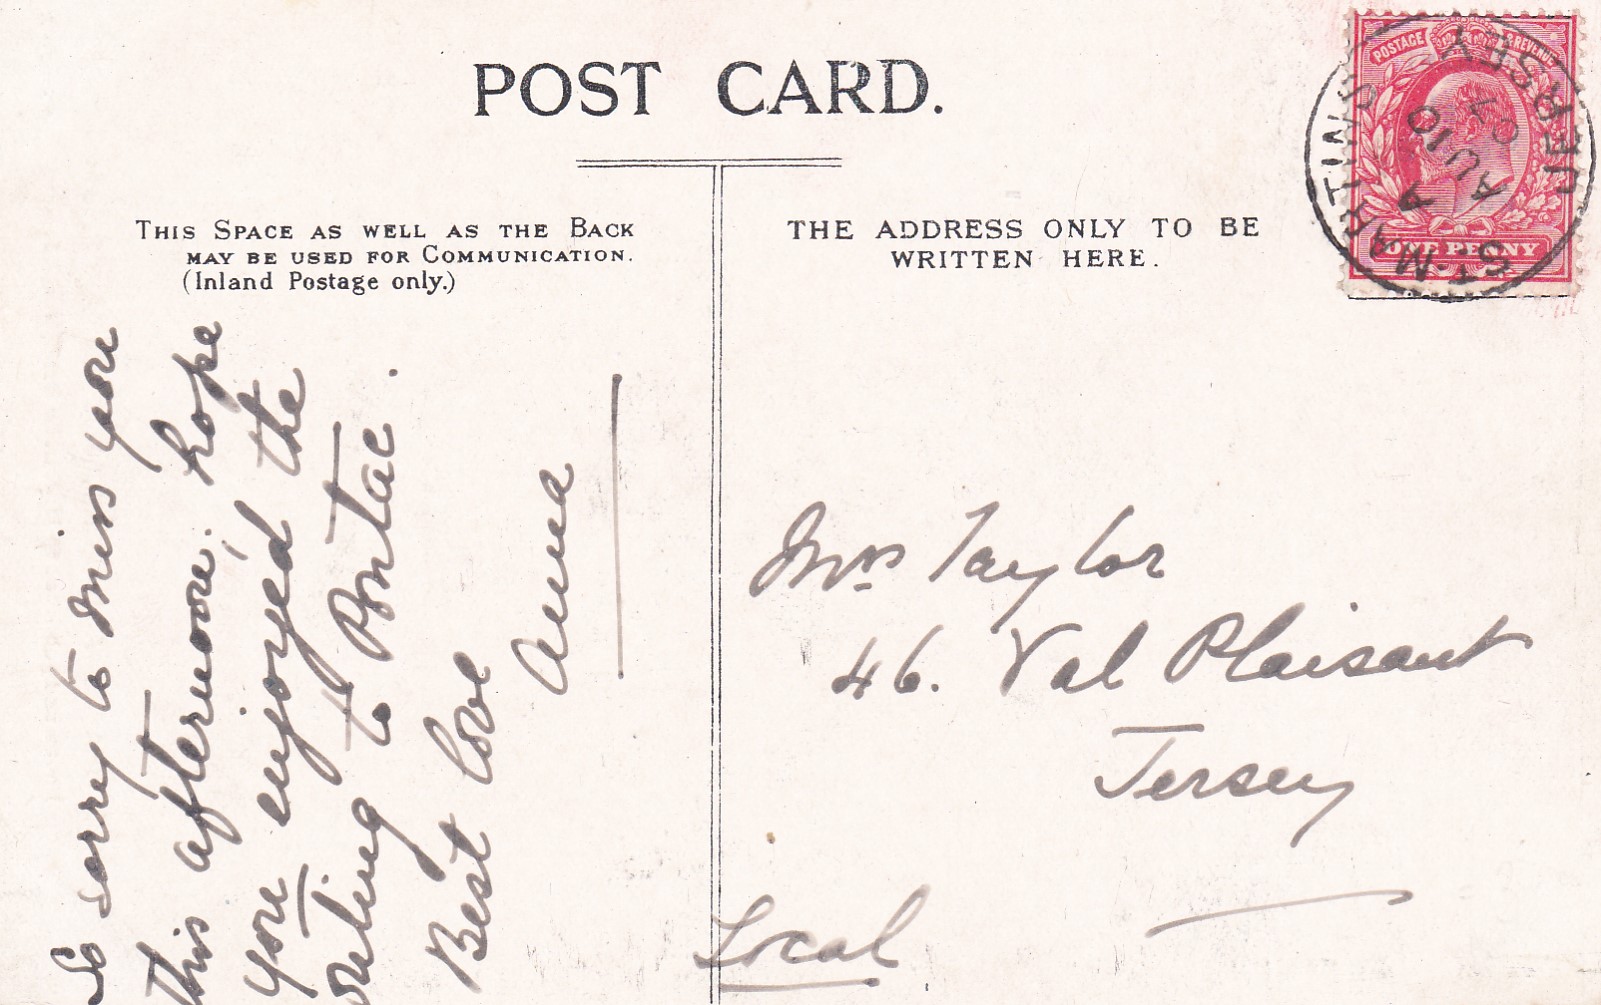 POST CARD.
THIS SPACE AS WELL AS THE BACK
MAY BE USED FOR COMMUNICATION.
(Inland Postage only.)
THE ADDRESS ONLY TO BE
WRITTEN HERE.
POSTAGE & REVENUE
ONE PENNY
ST. MARTINS JERSEY
A
AU 10
07
So sorry to miss you
this afternoon; hope
you enjoyed the
outing to Pontac.
Best love
Anna
Mrs Taylor
46. Val Plaisant
Jersey
Local